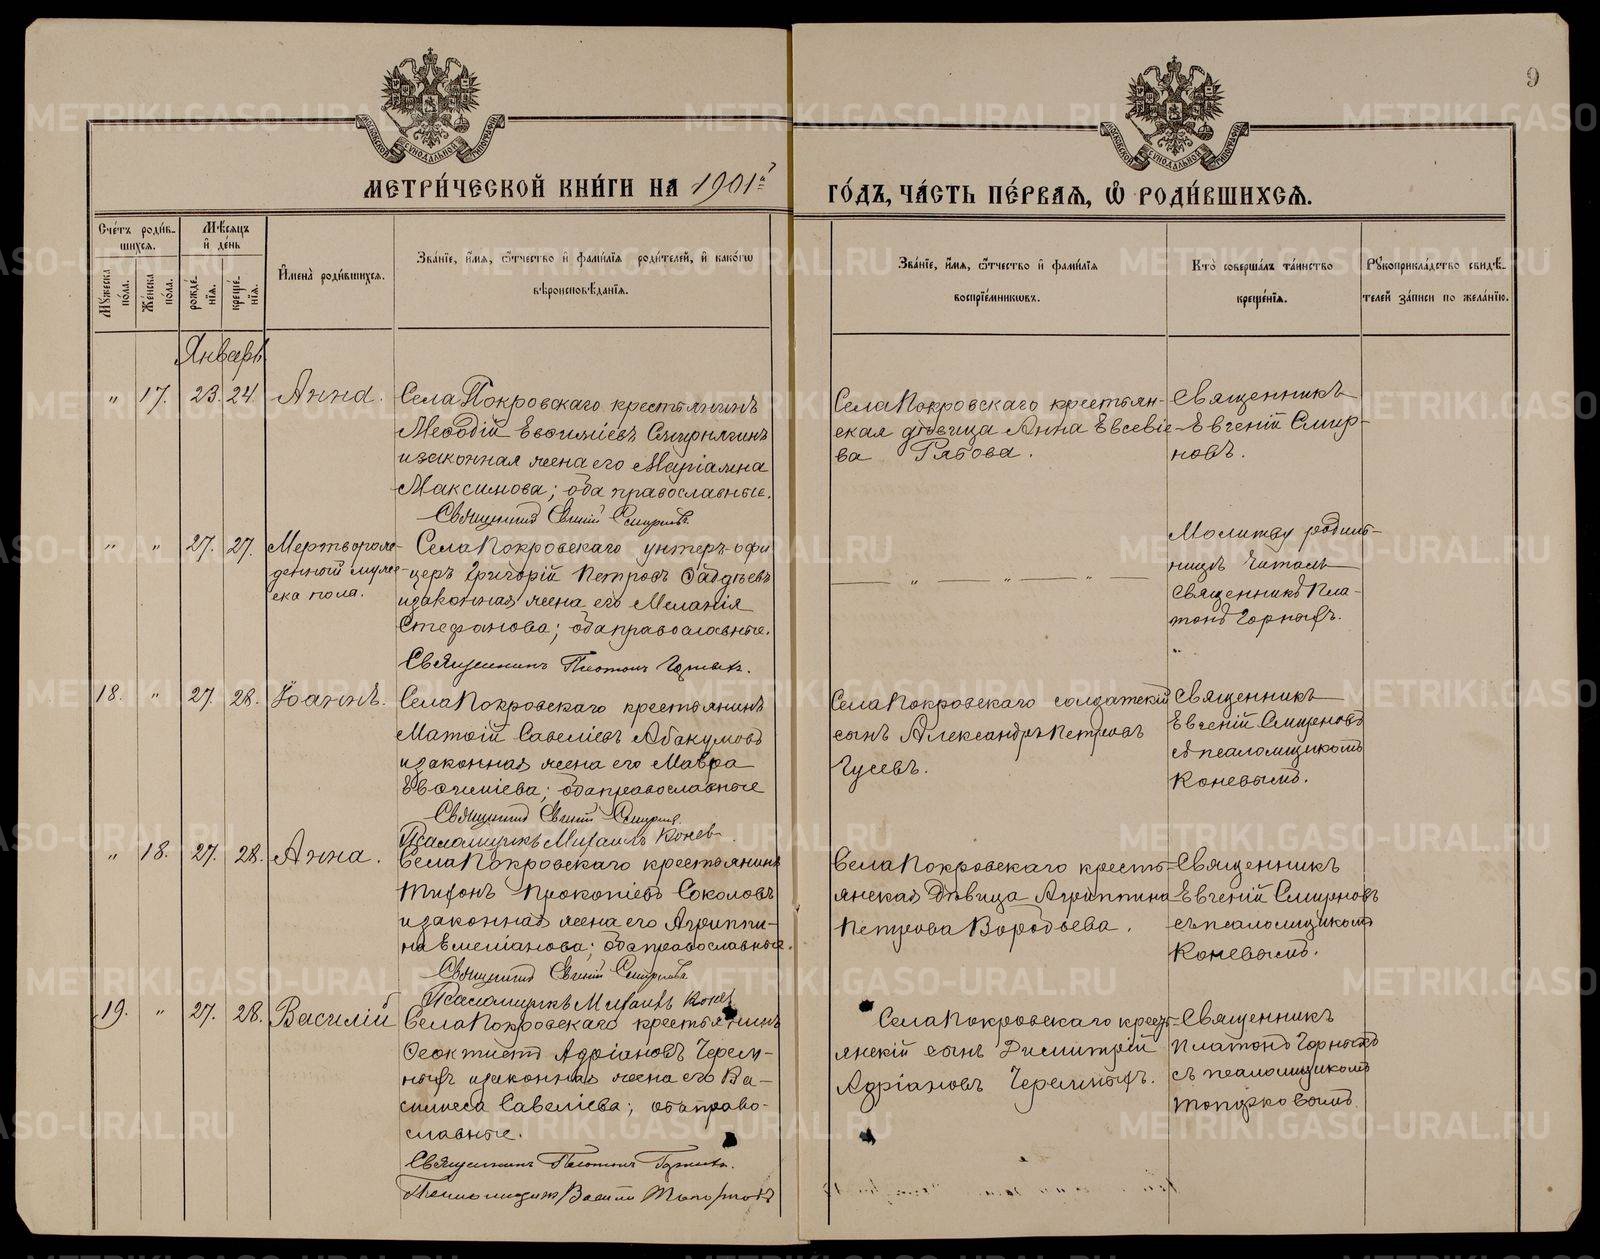 9
МОСКОВСКОЙ СѴНОДАЛЬНОЙ ТИПОГРАФІИ
МОСКОВСКОЙ СѴНОДАЛЬНОЙ ТИПОГРАФІИ
МЕТРИ́ЧЕСКОЙ КНИ́ГИ НА 1901й
ГО́ДЪ, ЧА́СТЬ ПЕ́РВАѦ, Ѡ҆ РОДИ́ВШИХСѦ.
Сче́тъ роди́в-
шихся.
Мѣ́сяцъ
и҆ де́нь
Мꙋжеска пола.
Же́нска по́ла.
рожде́-
нїѧ.
креще-
нїѧ.
И҆мена̀ роди́вшихся.
Зва́нїе, и҆́мѧ, ѻ҆́тчество и҆ фами́лїѧ роди́телей, и҆ како́гѡ
вѣроисповѣ́данїѧ.
Зва́нїе, и҆́мѧ, ѻ҆́тчество и҆ фами́лїѧ
воспрїе́мникѡвъ.
Кто̀ соверша́лъ та́инство
креще́нїѧ.
Рꙋкоприкла́дство свидѣ́-
телей за́писи по жела́нїю.
Январь
" 17. 23. 24. Анна.
Села Покровскаго крестьянинъ
Меѳодій Евѳиміевъ Смирнягинъ
и законная жена его Маріамна
Максимова; оба православные.
Священникъ Евгеній Смирновъ
Села Покровскаго крестьян-
ская дѣвица Анна Евсевіе-
ва Рябова.
Священникъ
Евгеній Смир-
новъ.
" " 27. 27. Мертворож-
денный муже-
ска пола.
Села Покровскаго унтеръ-офи
церъ Григорій Петровъ Ѳаддѣевъ
и законная жена его Меланія
Стефанова; оба православные.
Священникъ Платонъ Горныхъ.
" " "
Молитву родиль-
ницѣ читалъ
Священникъ Пла-
тонъ Горныхъ.
"
18. " 27. 28. Іоаннъ.
Села Покровскаго крестьянинъ
Матѳій Савеліевъ Абакумовъ
и законная жена его Мавра
Евѳиміева; оба православные
Священникъ Евгеній Смирновъ
Псаломщикъ Михаилъ Конев
Села Покровскаго солдатскій
сынъ Александръ Петровъ
Гусевъ.
Священникъ
Евгеній Смирновъ
съ псаломщикомъ
Коневымъ.
" 18. 27. 28. Анна.
Села Покровскаго крестьянинъ
Тифонъ Прокопіевъ Соколовъ
и законная жена его Агриппи-
на Емеліанова; оба православные.
Священникъ Евгеній Смирновъ
Псаломщикъ Михаилъ Конев
Села Покровскаго кресть-
янская дѣвица Агриппина
Петрова Воробьева.
Священникъ
Евгеній Смирновъ
съ псаломщикомъ
Коневымъ.
19. " 27. 28. Василій
Села Покровскаго крестьянинъ
Ѳеоктистъ Адріановъ Черем-
ныхъ и законная жена его Ва-
силисса Савеліева; оба право-
славные.
Священникъ Платонъ Горныхъ.
Псаломщикъ Василій Топорковъ
Села Покровскаго кресть-
янскій сынъ Димитрій
Адріановъ Черемныхъ.
Священникъ
Платонъ Горныхъ
съ псаломщикомъ
Топорковымъ.
METRIKI.GASO-URAL.RU